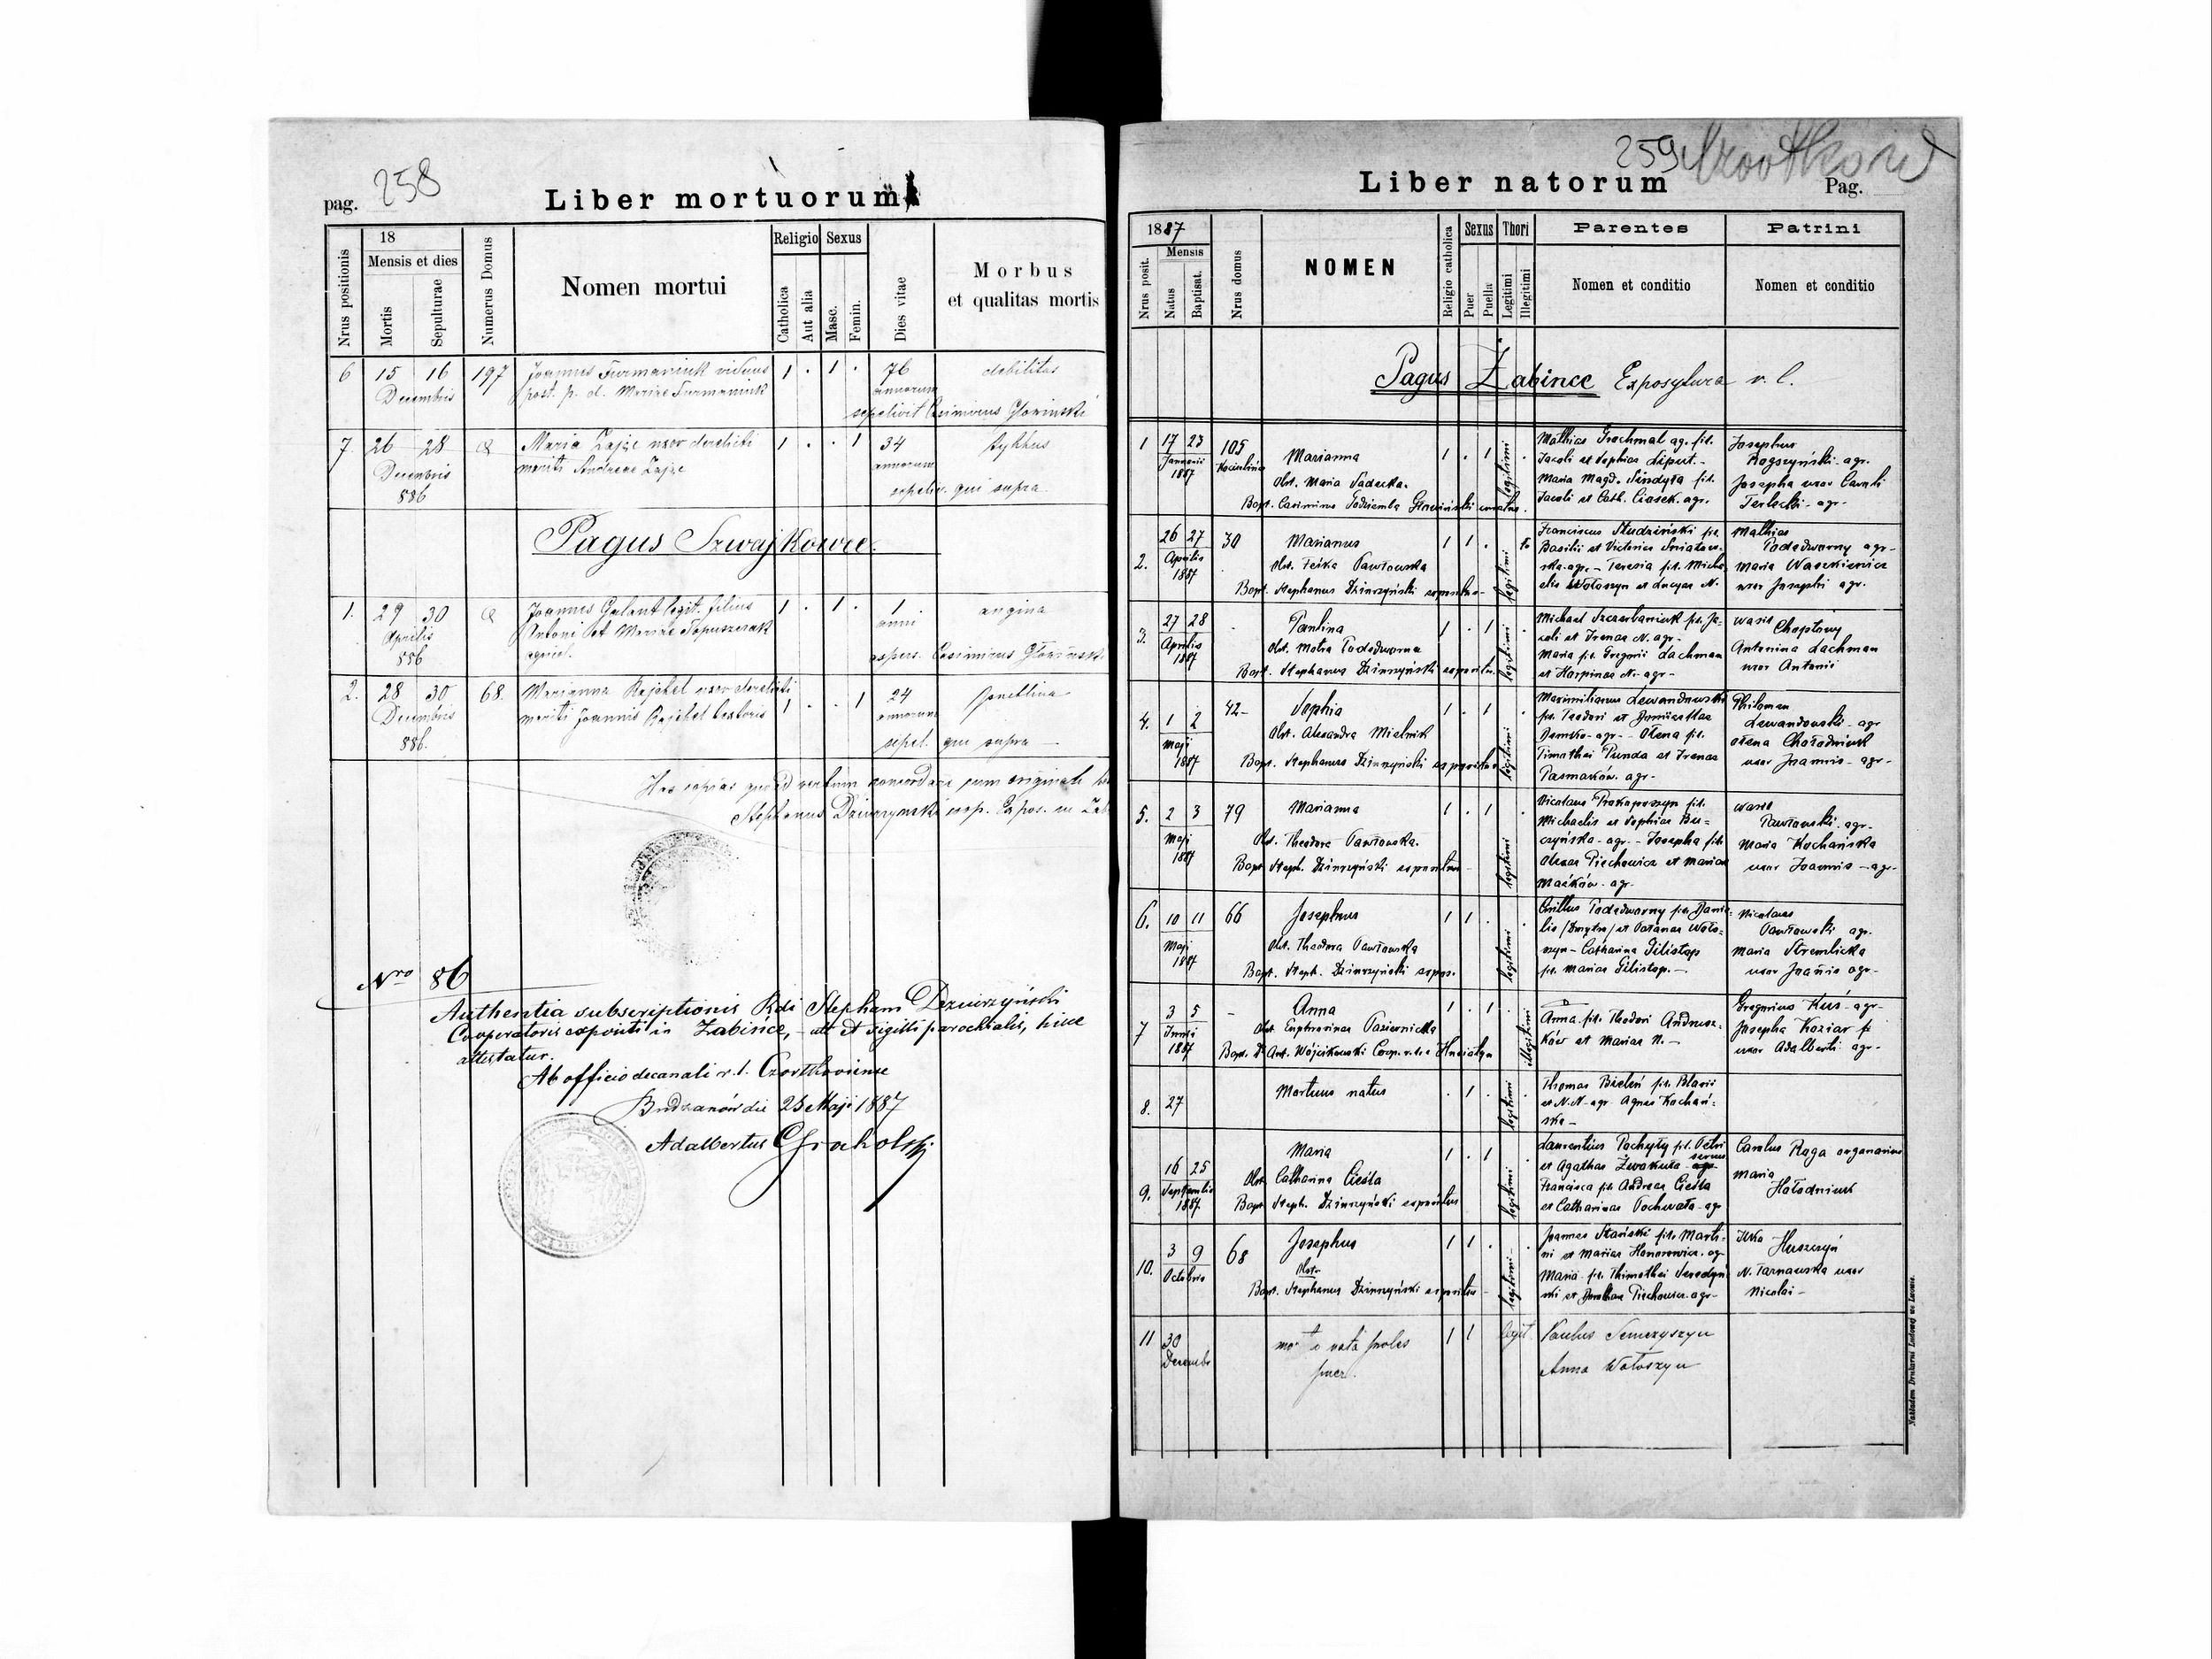 pag. 258
Liber mortuorum
Nrus positionis
18
Mensis et dies
Mortis
Sepulturae
Numerus Domus
Nomen mortui
Religio
Catholica
Aut alia
Sexus
Masc.
Femin.
Dies vitae
Morbus
et qualitas mortis
6 15 16 197 Joannes Furmaniuk viduus 1 . 1 . 76 debilitas
Decembris post. p. d. Mariae Furmaniuk annorum
sepelivit Casimirus Głowinski
7. 26 28 Maria Zajże uxor derelicti 1 . . 1 34 typhus
Decembris mariti Andreae Zajże annorum
886 sepeliv. qui supra
Pagus Szwajkowce.
1. 29 30 Joannes Galant legit. filius 1 . 1 . 1 angina
Aprilis Antoni et Mariae anni
886 agricol. Casimirus
2. 28 30 68. Marianna Rajchel uxor derelicti 1 . . 1 24
Decembris mariti Joannis Rajchel annorum
886. sepel. qui supra —
Has copias quoad verbum concordare cum originali
Stephanus Dziurzynski coop. Expos. in
Nro 86
Authentia subscriptionis Rdi Stephani Dziurzyński
Cooperatoris expositi in Zabińce, – uti et sigilli parochialis, hisce
attestatur.
Ab officio decanali r. l. Czortkoviense
Budzanów die 25 Maji 1887
Adalbertus Grocholski
259 Czortkow
Liber natorum Pag.
1887
Nrus posit.
Mensis
Natus
Baptisat.
Nrus domus
NOMEN
Religio catholica
Sexus
Puer
Puella
Thori
Legitimi
Illegitimi
Parentes
Nomen et conditio
Patrini
Nomen et conditio
Pagus Żabince Exposytura r. l.
1 17 23 105 Marianna 1 . 1 legitimi . Mathias Grochmal ag. fil. Josephus
Januarii Jacobi et Sophiae Lipert. – Rogszyński – agr.
1887 Obst. Maria Sadecka. Maria Magd. fil. Josepha uxor
Bapt. Casimirus Godziemba Jacobi et Cath. Ciasek. agr. Terlecki – agr –
2. 26 27 30 Marianus 1 1 . legitimi Franciscus Studziński fil. Mathias
Aprilis Obst. Pawłowska Basilii et Victoriae Podedworny agr –
1887 agr. – Teresia fil. Micha- Maria Waszkiewicz
Bapt. Stephanus Dziurzyński expositus – elis Wołoszyn et Lucyae N. uxor Josephi agr.
3. 27 28 - Paulina 1 . 1 legitimi Michael Szczerbaniuk fil. Ja- Wasil
Aprilis cobi et Irenae N. agr – Chaptowy
1887 Obst. Motra Podedworna Maria fil. Gregorii Lachman Antonina Lachman
Bapt. Stephanus Dziurzyński expositus et Harpinae N. – agr – uxor Antonii
4. 1 2 42 – Sophia 1 . 1 legitimi . Maximilianus Lewandowski Philemon
Maji Obst. Alexandra Mielnik fil. Teodori et Lewandowski – agr
1887 Bapt. Stephanus Dziurzyński expositus agr – Olena fil. Olena Chołodniuk
Timothei Punda et Irenae uxor Joannis – agr –
Pasmaków. agr –
5. 2 3 79 Marianna 1 . 1 legitimi . Nicolaus Prokoposzyn fil. Wasil
Maji Michaelis et Sophiae Bu- Pawłowski – agr –
1887 Obst. Theodora Pawłowska. czyńska – agr – Josepha fil. Maria Kochańska
Bapt. Steph. Dziurzyński expositus – Olexae Piechowicz et Mariae uxor Joannis – agr –
Maćków – agr –
6. 10 11 66 Josephus 1 1 . legitimi . Cirillus Podedworny fil. Danie- Nicolaus
Maji lis /Dmytra/ et Woło- Pawłowski agr.
1887 Obst. Theodora Pawłowska szyn – Catharina Gilistap Maria Stremlicka
Bapt. Steph. Dziurzyński expos. fil. Mariae Gilistap. – uxor Joannis agr –
7 3 5 - Anna 1 . 1 . illegitimi Anna fil. Theodori Andrusz- Gregorius Kuś – agr –
Junii Obst. Euphrosina Pasiernicka ków et Mariae N. – Josepha Koziar
1887 Bapt. Ant. Wójcikowski Coop. uxor Adalberti agr –
8. 27 Mortuus natus . 1 . legitimi . Thomas Bieleń fil. Blasii
et N. N – agr Agnes Kochań-
ska –
9. 16 25 Maria 1 . 1 legitimi . Laurentius Pochyły fil. Petri Carolus Raga organarius
Septembris Obst. Catharina Cieśla et Agathae Żwakuła servus Maria
1887. Bapt. Steph. Dziurzyński expositus Francisca fil. Andreae Cieśla Hołodniuk
et Catharinae Pochwała – agr
10. 3 9 68 Josephus 1 1 . legitimi – . Joannes Stański fil. Marti-
Octobris Obst. ni et Mariae Honorowicz. ag
Bapt. Stephanus Dziurzyński expositus – Maria fil. Thimothei N. Tarnawska uxor
ski et agr – Nicolai –
11 30 nata proles 1 1 legit. Paulus Semczyszyn
Decembr puer. Anna Wołoszyn
Nakładem Drukarni Ludowej we Lwowie.